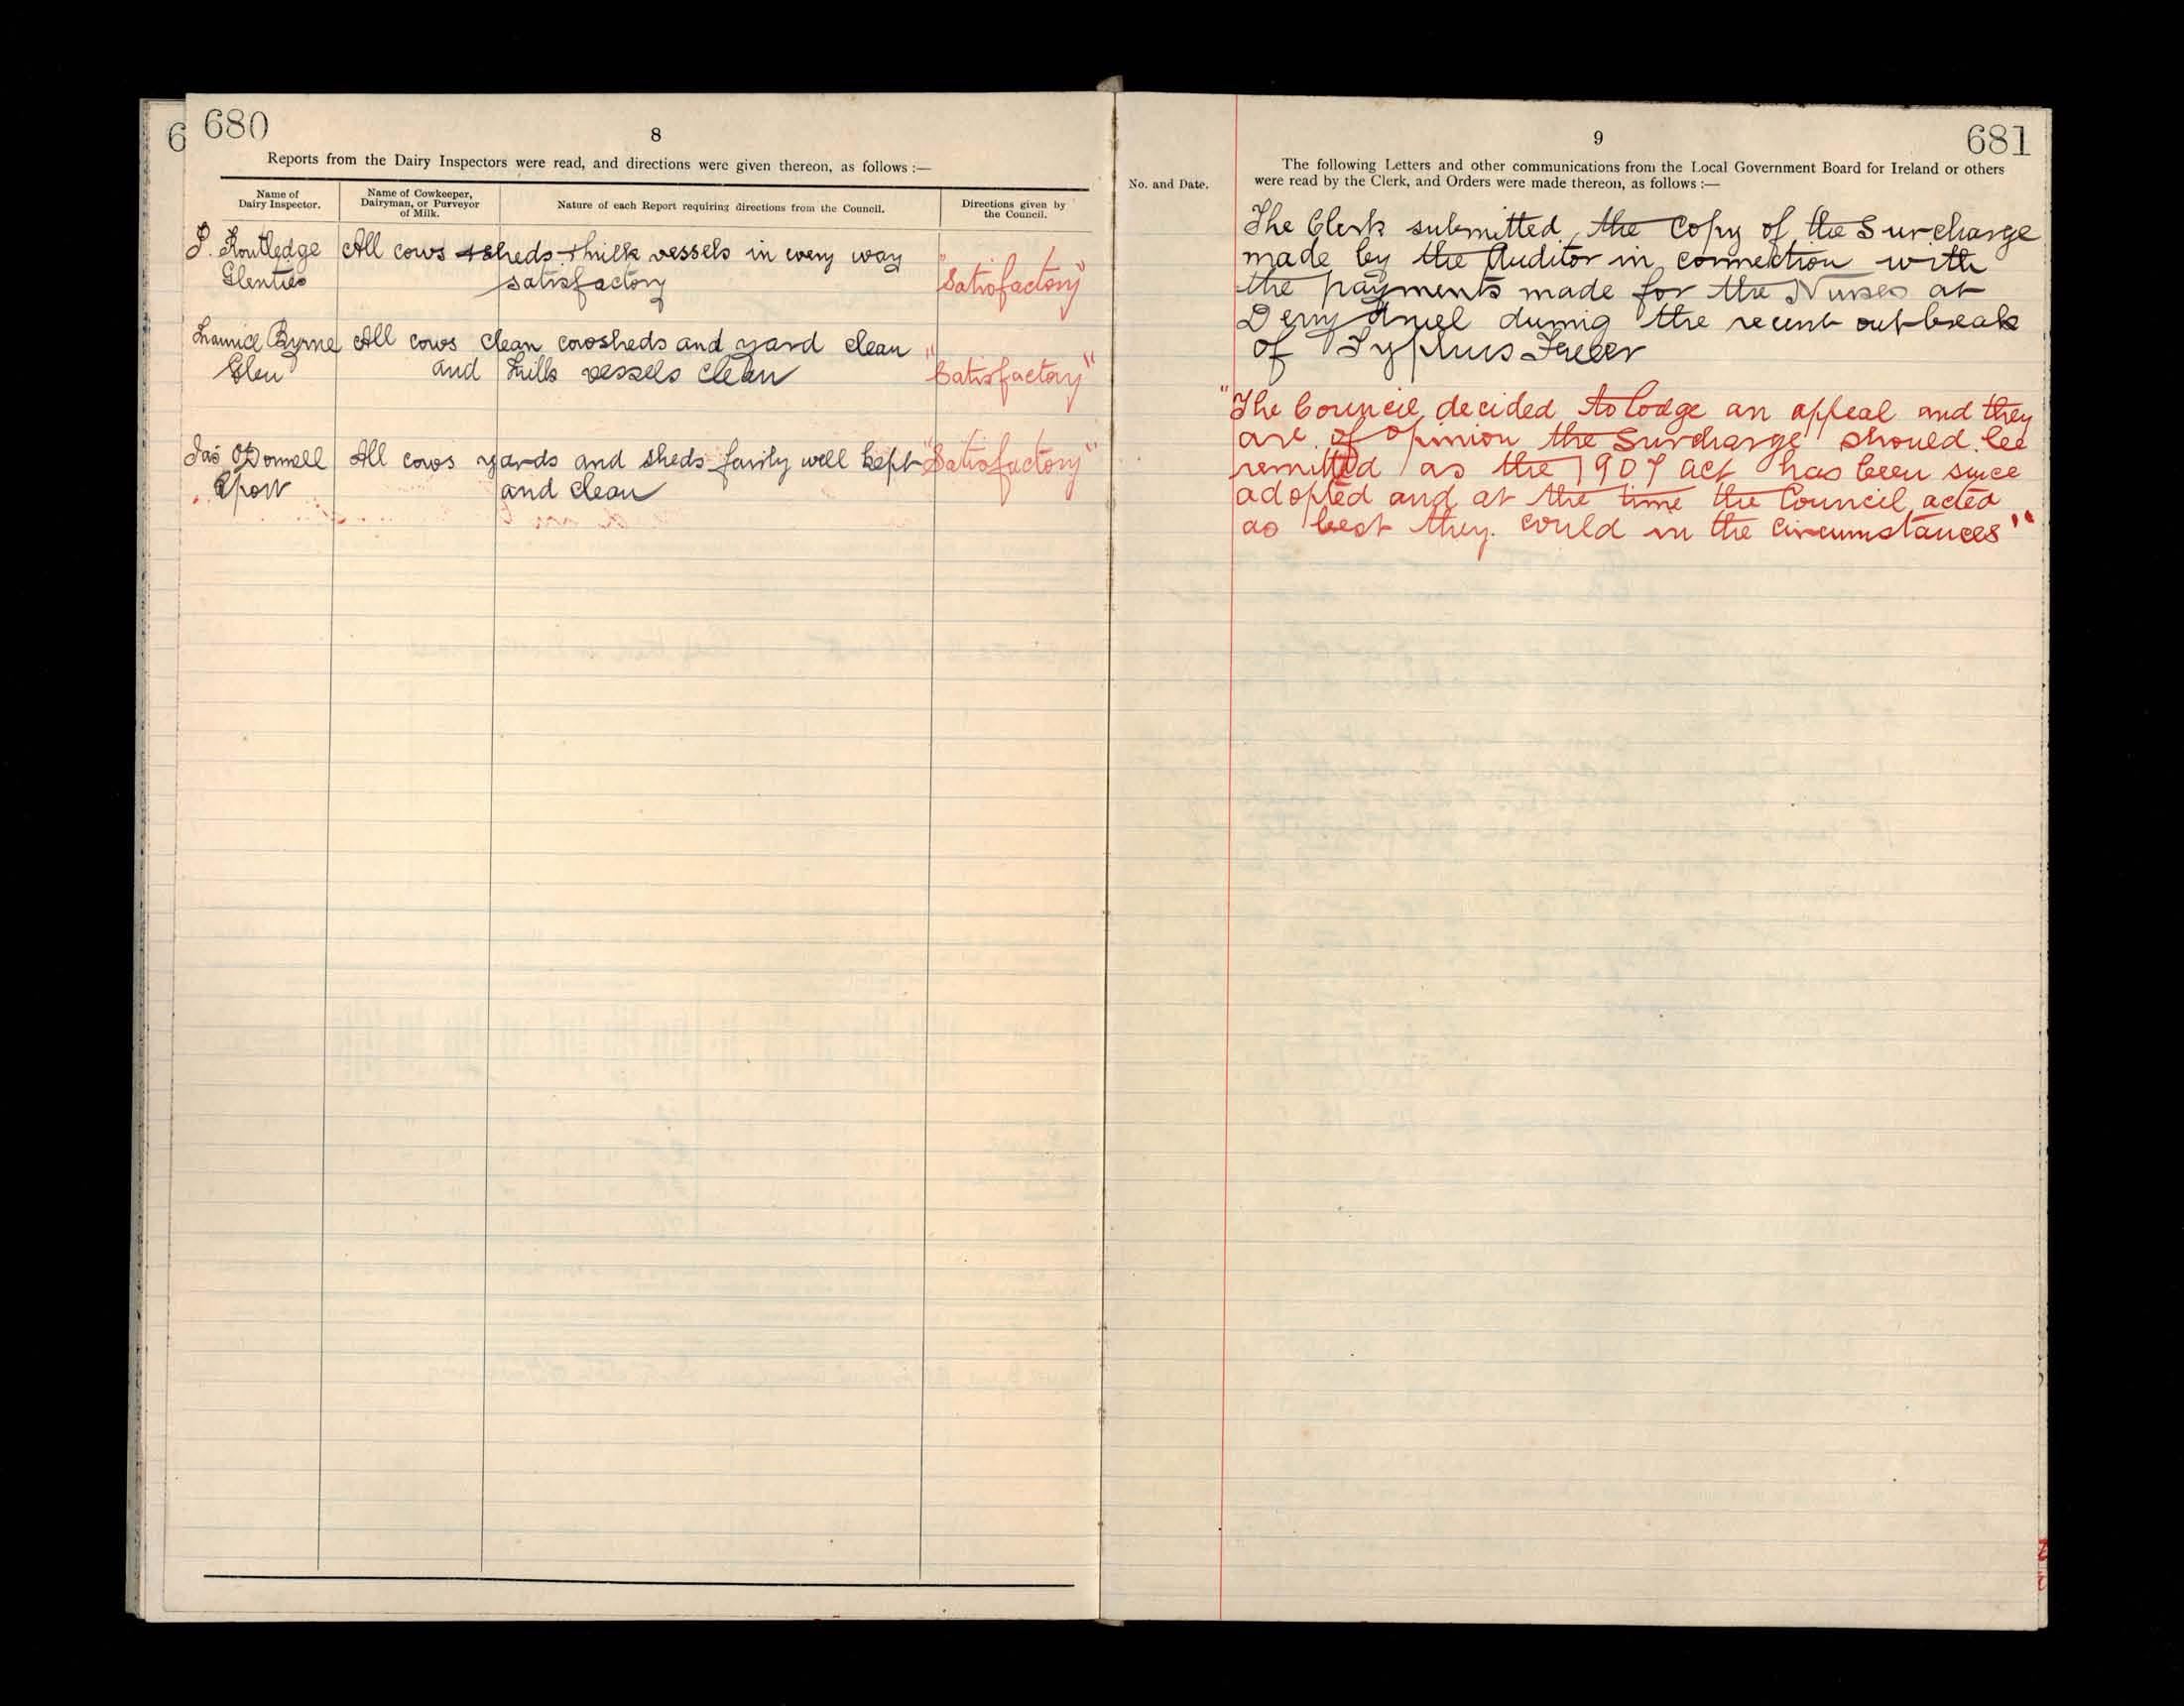 6 680
8
Reports from the Dairy Inspectors were read, and directions were given thereon, as follows :—
Name of Dairy Inspector.
Name of Cowkeeper, Dairyman, or Purveyor of Milk.
Nature of each Report requiring directions from the Council.
Directions given by the Council.
P. Routledge All cows + sheds + milk vessels in every way
Glenties satisfactory "Satisfactory"
Byrne All cows clean cowsheds and yard clean
Glen and milk vessels clean "Satisfactory"
Jas O'Donnell All cows yards and sheds fairly well kept "Satisfactory"
and clean
681
9
The following Letters and other communications from the Local Government Board for Ireland or others
No. and Date. were read by the Clerk, and Orders were made thereon, as follows :—
The Clerk submitted the Copy of the Surcharge
made by the Auditor in connection with
the payments made for the Nurses at
during the recent outbreak
of Typhus Fever
"The Council decided to lodge an appeal and they
are of opinion the Surcharge should be
remitted as the 1907 act has been since
adopted and at the time the Council acted
as best they could in the circumstances"